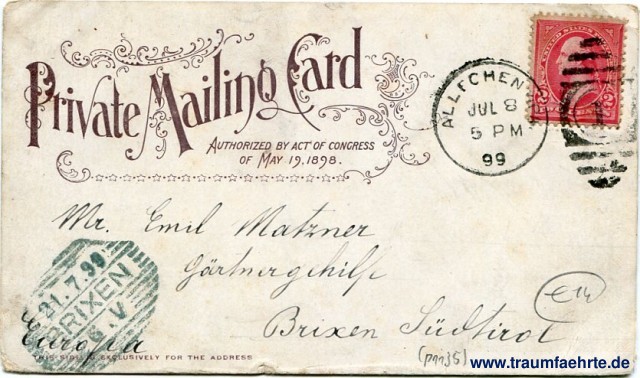 Private Mailing Card
AUTHORIZED BY ACT OF CONGRESS
OF MAY 19, 1898.
ALLECHEN
JUL 8
5 PM
99
UNITED STATES
2 2
Mr. Emil Matzner
Gärtnergehilfe
Brixen Südtirol
Europa
21.7.99
BRIXEN
THIS SIDE IS EXCLUSIVELY FOR THE ADDRESS
€14
(p1135)
www.traumfaehrte.de